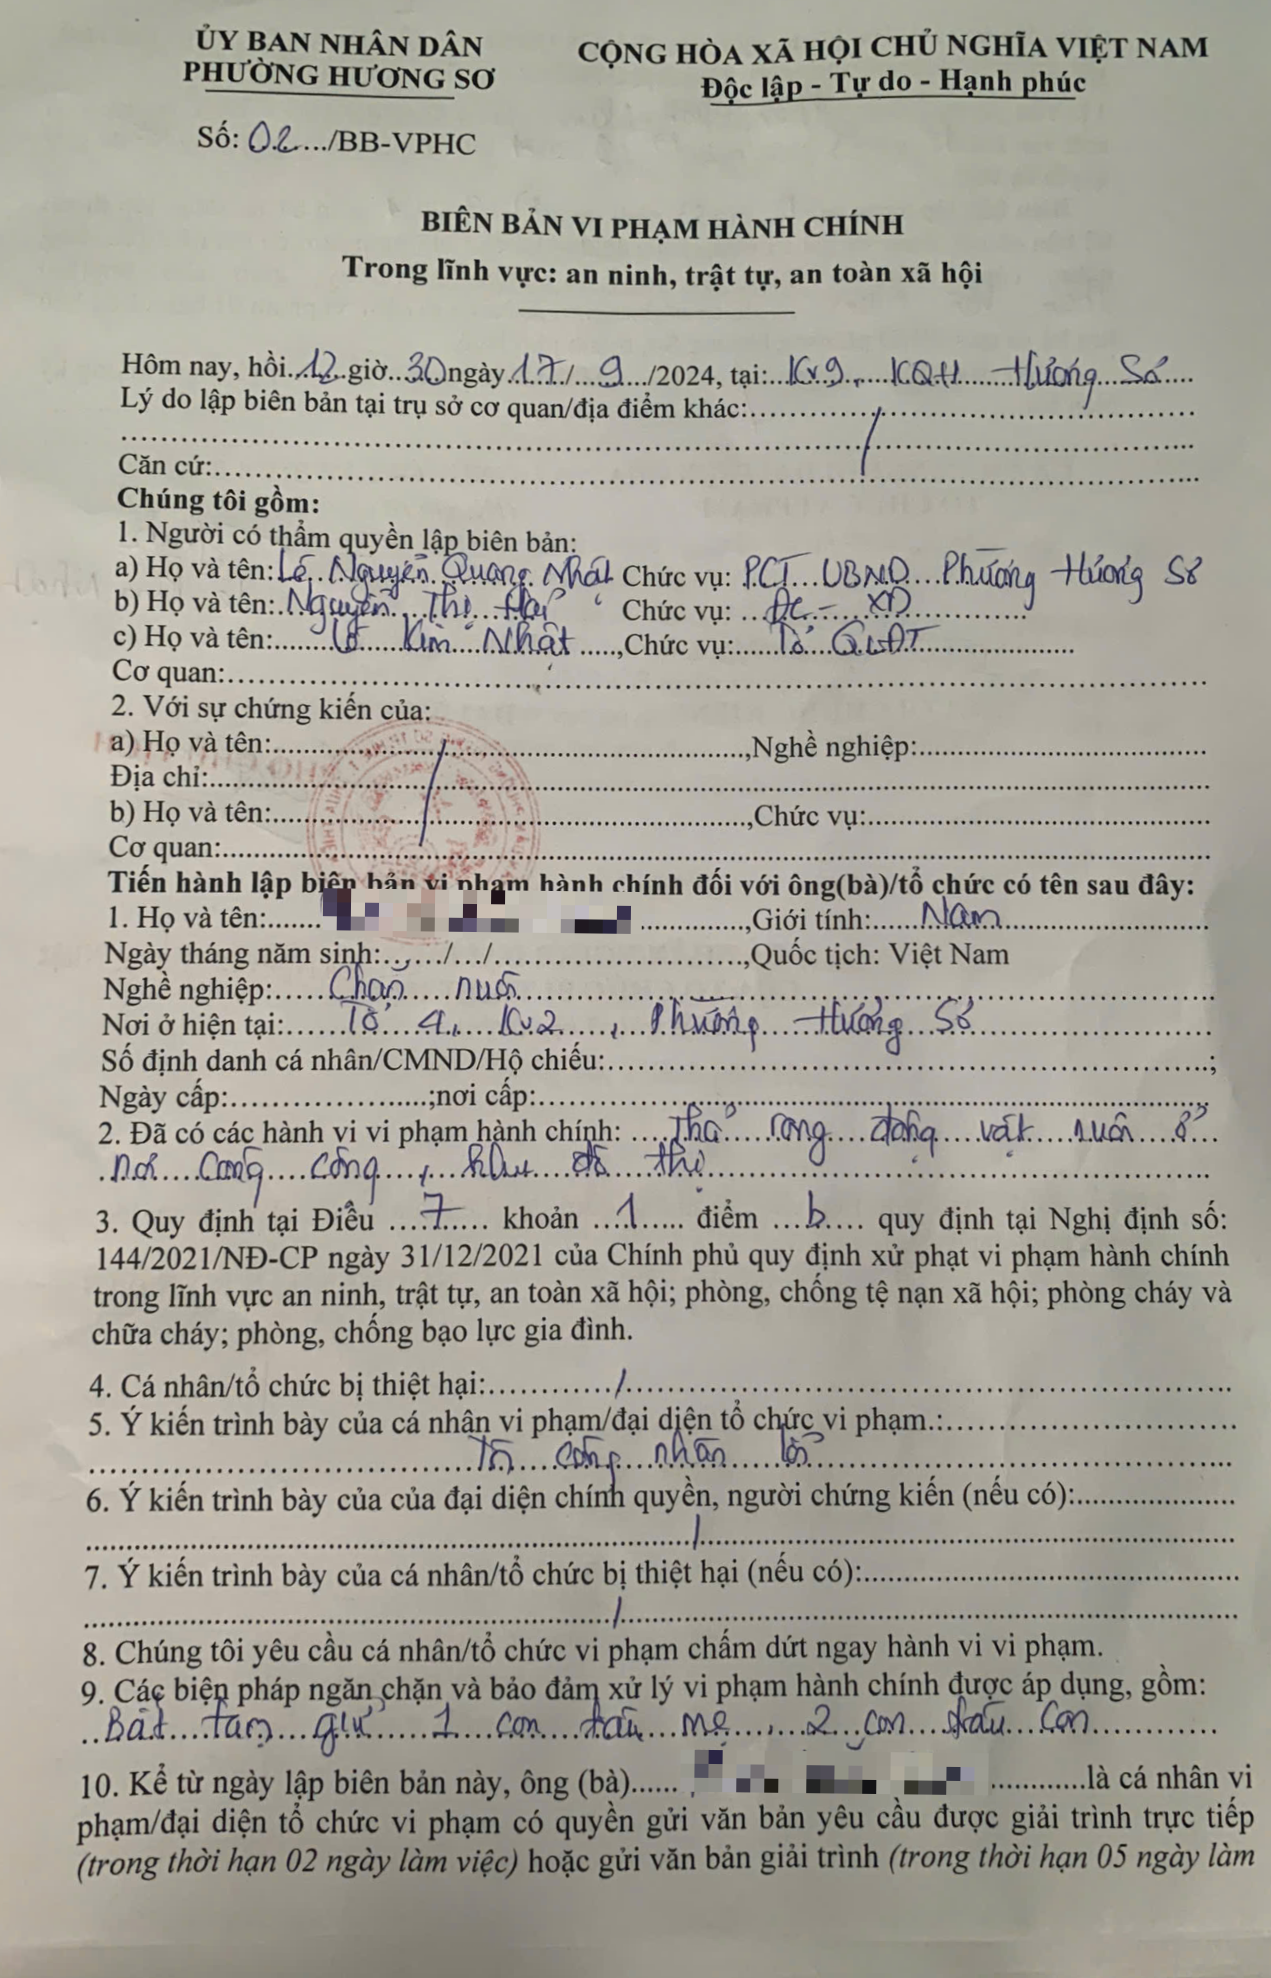 ỦY BAN NHÂN DÂN
PHƯỜNG HƯƠNG SƠ
CỘNG HÒA XÃ HỘI CHỦ NGHĨA VIỆT NAM
Độc lập - Tự do - Hạnh phúc
Số: 02.../BB-VPHC
BIÊN BẢN VI PHẠM HÀNH CHÍNH
Trong lĩnh vực: an ninh, trật tự, an toàn xã hội
Hôm nay, hồi 12 giờ 30 ngày 17/9/2024, tại: Kv9, KQH Hương Sơ
Lý do lập biên bản tại trụ sở cơ quan/địa điểm khác: /
Căn cứ:
Chúng tôi gồm:
1. Người có thẩm quyền lập biên bản:
a) Họ và tên: Lê Nguyễn Quang Nhật Chức vụ: PCT UBND Phường Hương Sơ
b) Họ và tên: Nguyễn Thị Hải Chức vụ: ĐC - XD
c) Họ và tên: Lê Kim Nhật, Chức vụ: Tổ QLĐT
Cơ quan:
2. Với sự chứng kiến của:
a) Họ và tên: /, Nghề nghiệp:
Địa chỉ:
b) Họ và tên:, Chức vụ:
Cơ quan:
Tiến hành lập biên bản vi phạm hành chính đối với ông(bà)/tổ chức có tên sau đây:
1. Họ và tên:, Giới tính: Nam
Ngày tháng năm sinh: .../.../..., Quốc tịch: Việt Nam
Nghề nghiệp: Chăn nuôi
Nơi ở hiện tại: Tổ 4, Kv2, Phường Hương Sơ
Số định danh cá nhân/CMND/Hộ chiếu:;
Ngày cấp:;nơi cấp:
2. Đã có các hành vi vi phạm hành chính: Thả rông động vật nuôi ở
nơi công cộng, khu đô thị
3. Quy định tại Điều 7 khoản 1 điểm b quy định tại Nghị định số:
144/2021/NĐ-CP ngày 31/12/2021 của Chính phủ quy định xử phạt vi phạm hành chính
trong lĩnh vực an ninh, trật tự, an toàn xã hội; phòng, chống tệ nạn xã hội; phòng cháy và
chữa cháy; phòng, chống bạo lực gia đình.
4. Cá nhân/tổ chức bị thiệt hại: /
5. Ý kiến trình bày của cá nhân vi phạm/đại diện tổ chức vi phạm.:
Tôi công nhận lỗi
6. Ý kiến trình bày của của đại diện chính quyền, người chứng kiến (nếu có):
/
7. Ý kiến trình bày của cá nhân/tổ chức bị thiệt hại (nếu có):
/
8. Chúng tôi yêu cầu cá nhân/tổ chức vi phạm chấm dứt ngay hành vi vi phạm.
9. Các biện pháp ngăn chặn và bảo đảm xử lý vi phạm hành chính được áp dụng, gồm:
Bắt tạm giữ 1 con trâu mẹ, 2 con trâu con
10. Kể từ ngày lập biên bản này, ông (bà)...... là cá nhân vi
phạm/đại diện tổ chức vi phạm có quyền gửi văn bản yêu cầu được giải trình trực tiếp
(trong thời hạn 02 ngày làm việc) hoặc gửi văn bản giải trình (trong thời hạn 05 ngày làm